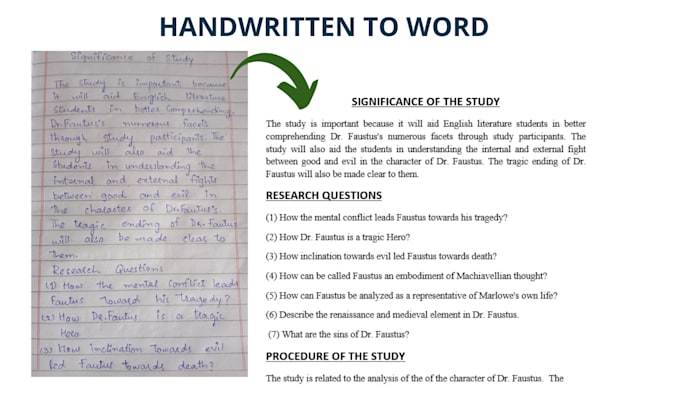 HANDWRITTEN TO WORD
Significance of Study
The study is important because
it will aid English literature
Students in better Comprehending
Dr.Faustus's numerous facets
through study participants. The
Study will also aid the
Students in understanding the
internal and external fights
between good and evil in
the character of Dr.Faustus's.
The tragic ending of Dr. Faustus
will also be made clear to
them.
Research Questions
(1) How the mental Conflict leads
Faustus Toward his Tragedy?
(2) How Dr.Faustus is a tragic
Hero
(3) How inclination Towards evil
led Faustus towards death?
SIGNIFICANCE OF THE STUDY
The study is important because it will aid English literature students in better
comprehending Dr. Faustus's numerous facets through study participants. The
study will also aid the students in understanding the internal and external fight
between good and evil in the character of Dr. Faustus. The tragic ending of Dr.
Faustus will also be made clear to them.
RESEARCH QUESTIONS
(1) How the mental conflict leads Faustus towards his tragedy?
(2) How Dr. Faustus is a tragic Hero?
(3) How inclination towards evil led Faustus towards death?
(4) How can be called Faustus an embodiment of Machiavellian thought?
(5) How can Faustus be analyzed as a representative of Marlowe's own life?
(6) Describe the renaissance and medieval element in Dr. Faustus.
(7) What are the sins of Dr. Faustus?
PROCEDURE OF THE STUDY
The study is related to the analysis of the of the character of Dr. Faustus. The